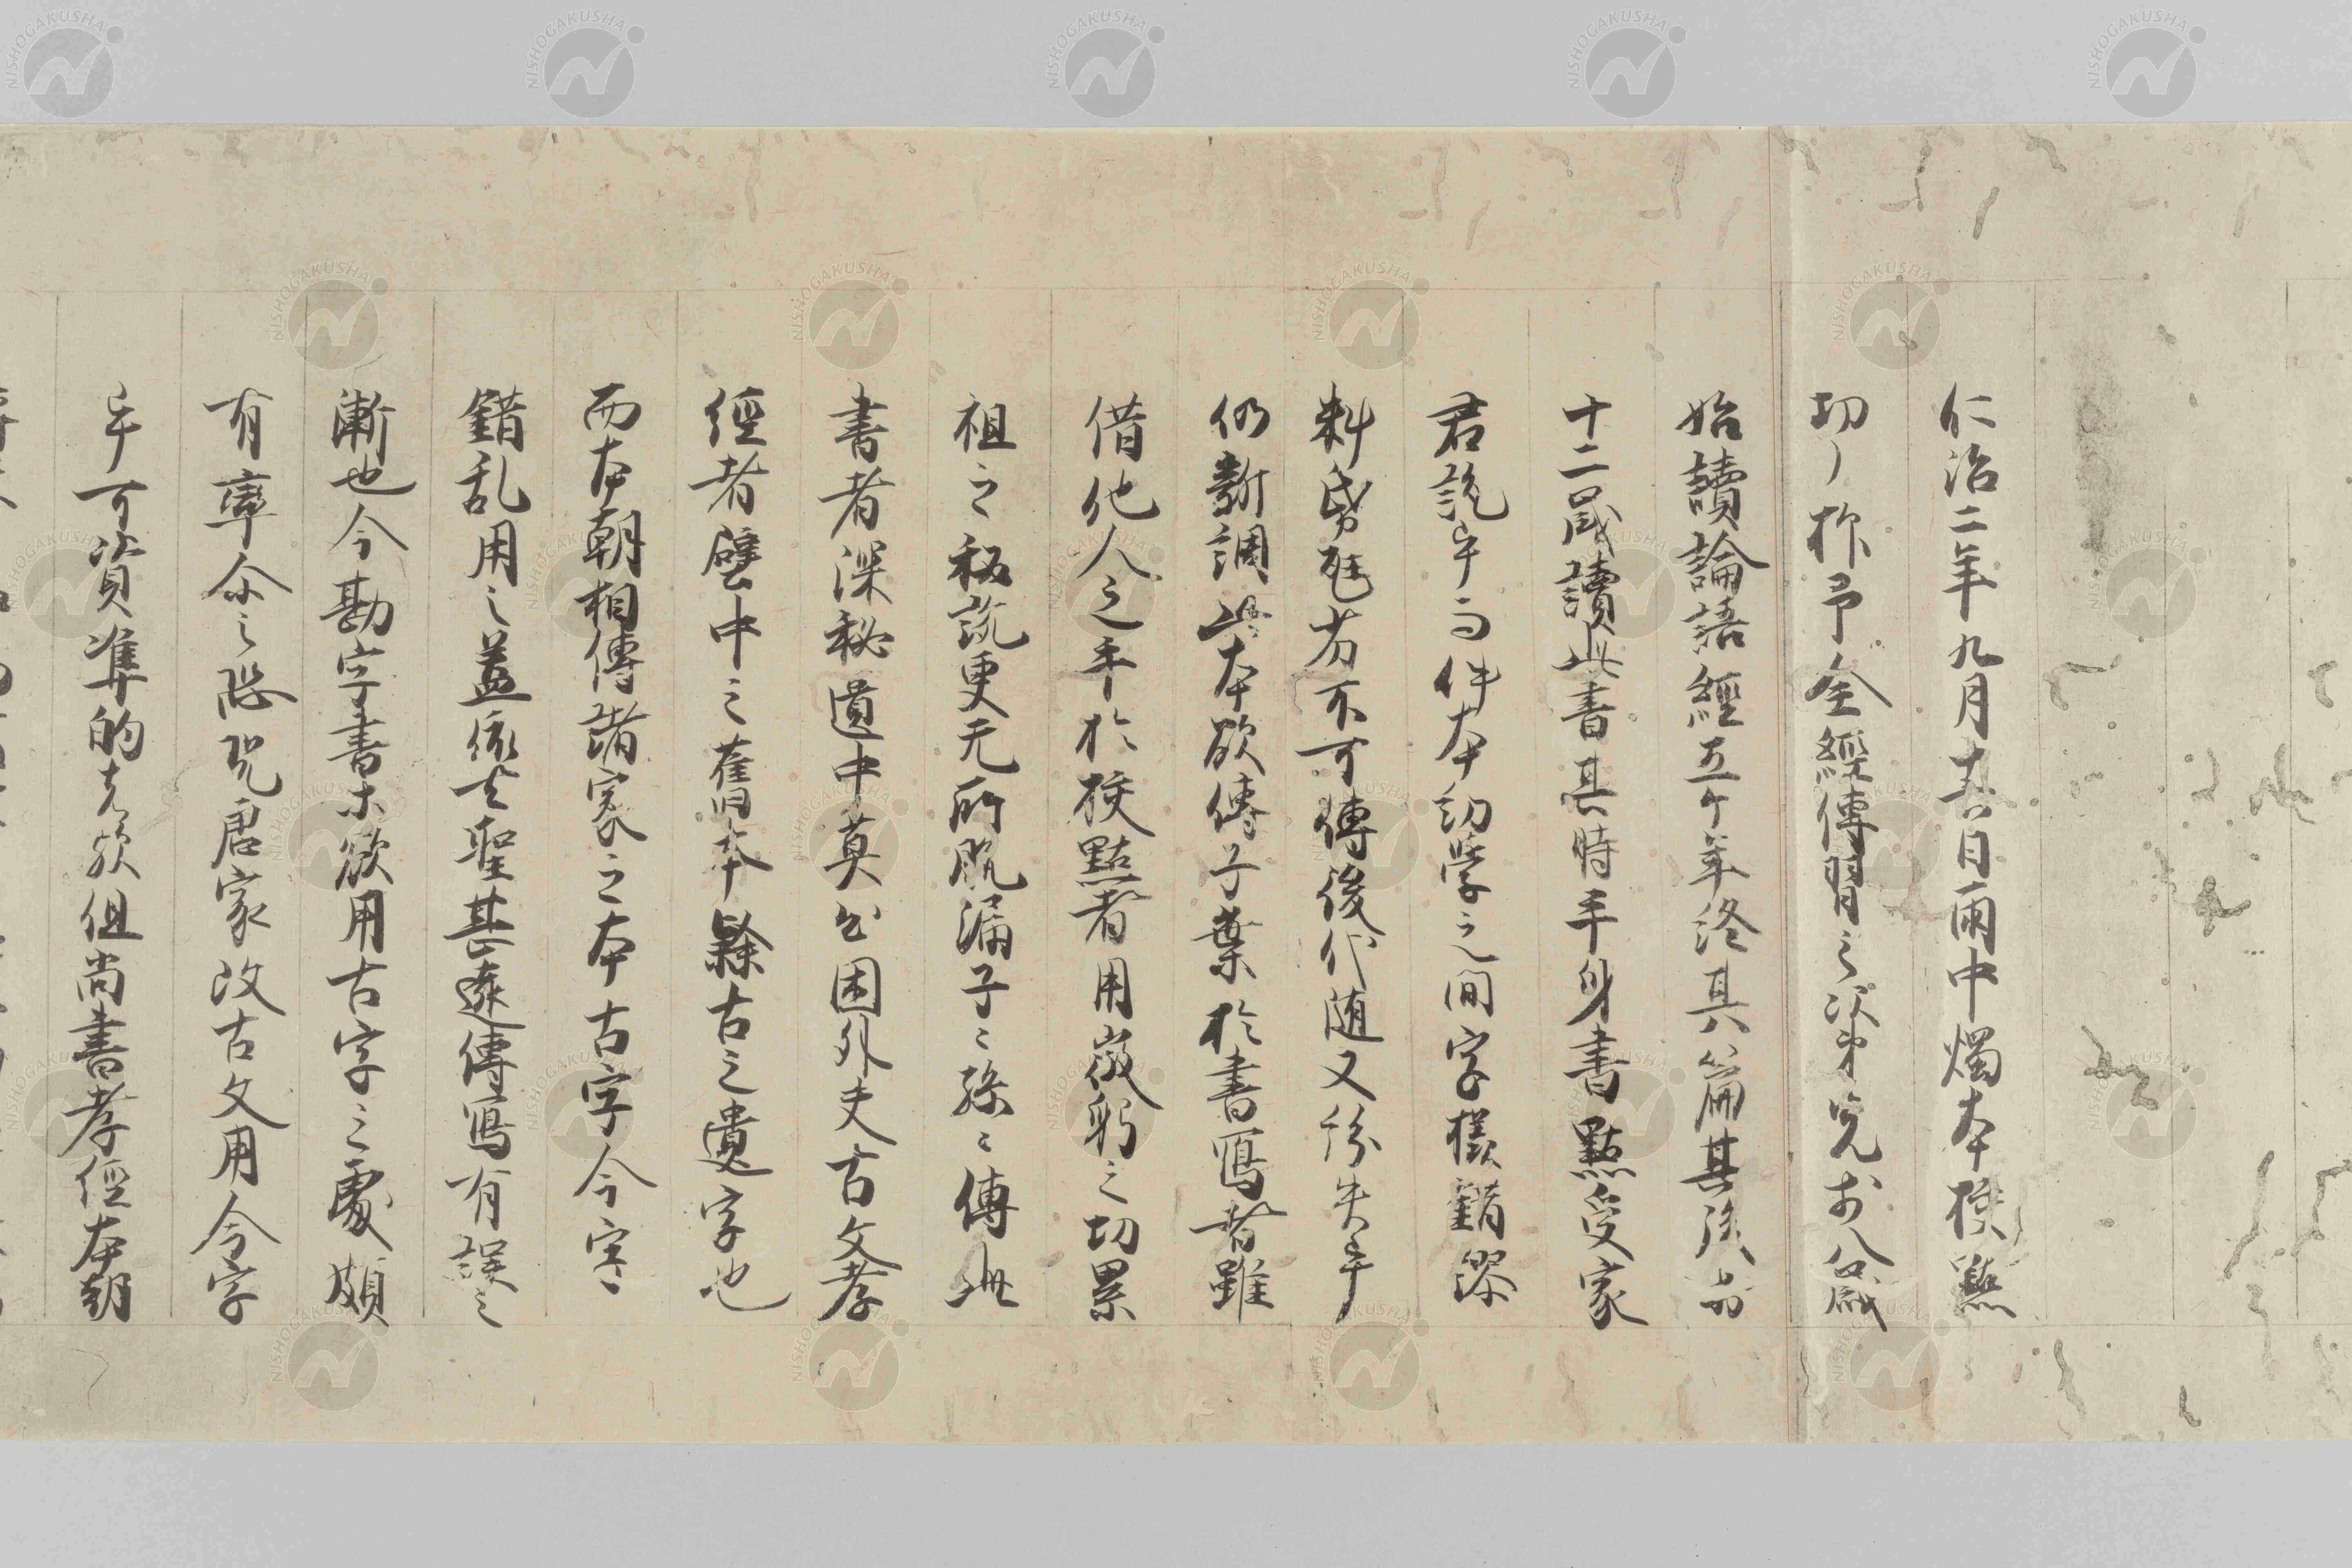 仁治二年九月廿六日雨中燭本校點
切了抑予全經傳習之次第完於八歲
始讀論語經五ケ年終其篇其後与
十二歲讀此書其時手身書點受家
君說乎而件本幼學之間字樣錯謬
料昏旁不可傳後代随又紛失乎
仍新調此本欲傳子葉於書寫者雖
借他人之手於挍點者用微躬之切累
祖之秘說更无所脫漏子〻孫〻傳此
書者深秘匱中莫出困外夫古文孝
經者壁中之舊本隸古之遺字也
而本朝相傳諸家之本古字今字
錯乱用之蓋依去聖甚遠傳寫有誤之
漸也今勘字書等欲用古字之處頗
有率尒之恐況唐家改古文用今字
乎可資準的者欤但尚書孝經本朝